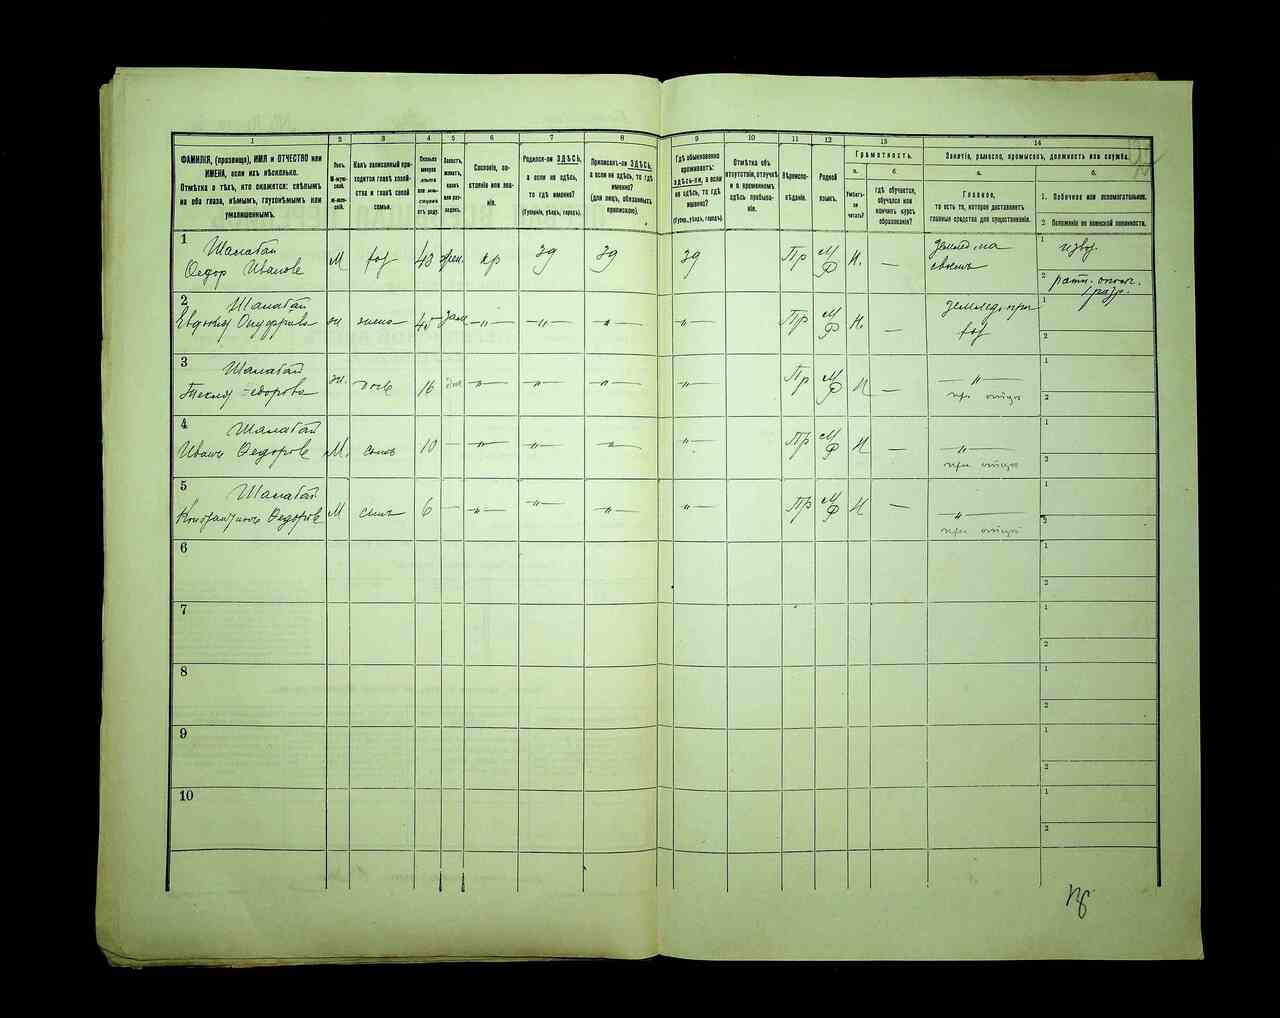 1 2 3 4 5 6 7 8 9 10 11 12 13 14
ФАМИЛІЯ, (прозвище), ИМЯ и ОТЧЕСТВО или
ИМЕНА, если ихъ нѣсколько.
Отмѣтка о тѣхъ, кто окажется: слѣпымъ
на оба глаза, нѣмымъ, глухонѣмымъ или
умалишеннымъ.
Полъ.
М-мужской.
Ж-женскій.
Какъ записанный при-
ходится главѣ хозяй-
ства и главѣ своей
семьи.
Сколько
минуло
лѣтъ
отъ роду.
Холостъ,
женатъ,
вдовъ
или раз-
веденъ.
Сословіе, со-
стояніе или зва-
ніе.
Родился-ли ЗДѢСЬ,
а если не здѣсь,
то гдѣ именно?
(Губернія, уѣздъ, городъ).
Приписанъ-ли ЗДѢСЬ,
а если не здѣсь, то гдѣ
именно?
(для лицъ, обязанныхъ
припискою).
Гдѣ обыкновенно
проживаетъ:
здѣсь-ли, а если
не здѣсь, то гдѣ
именно?
(Губер., уѣздъ, городъ).
Отмѣтка объ
отсутствіи, отлучкѣ
и о временномъ
здѣсь пребыва-
ніи.
Вѣроиспо-
вѣданіе.
Родной
языкъ.
Грамотность.
а.
Умѣетъ-
ли
читать?
б.
гдѣ обучается,
обучался или
кончилъ курсъ
образованія?
Занятіе, ремесло, промыселъ, должность или служба.
а.
Главное,
то есть то, которое доставляетъ
главныя средства для существованія.
б.
1. Побочное или вспомогательное.
2. Положеніе по воинской повинности.
1 Шалабай
Ѳедор Иванов М хоз 43 жен. кр зд зд зд Пр М Ф Н. — Землед. на своемъ 1 извоз.
2 ратн. ополч. 1 разр.
2 Шалабай
Евдокия Онуфриева ж жена 45 зам —"— —"— —"— —"— Пр М Ф Н. — Землед. при хоз 1
2
3 Шалабай
Текля Ѳедорова ж. дочь 16 —"— —"— —"— —"— Пр М Ф Н — —"— при отцѣ 1
2
4 Шалабай
Иванъ Ѳедоров М. сынъ 10 — —"— —"— —"— —"— Пр М Ф Н — —"— при отцѣ 1
2
5 Шалабай
Константинъ Ѳедоров М сынъ 6 — —"— —"— —"— —"— Пр М Ф Н — —"— при отцѣ 1
2
6 1
2
7 1
2
8 1
2
9 1
2
10 1
2